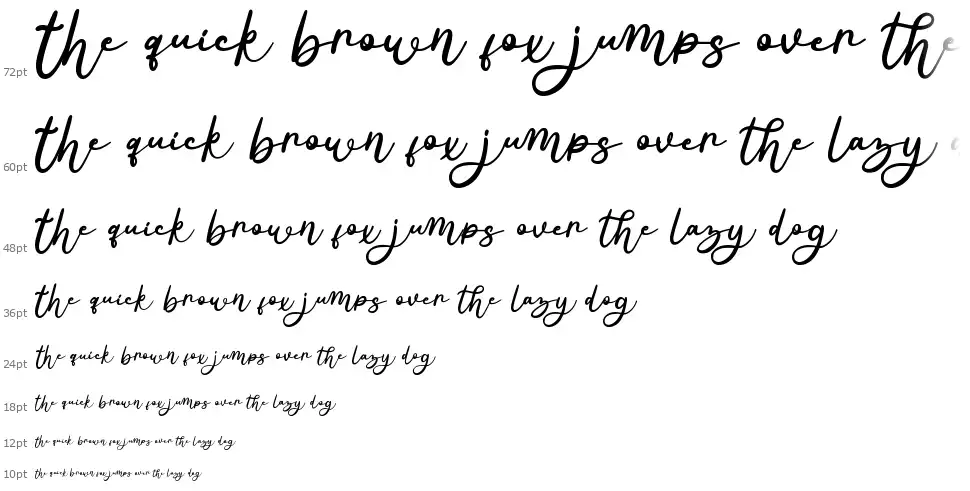 72pt the quick brown fox jumps over the
60pt the quick brown fox jumps over the lazy
48pt the quick brown fox jumps over the lazy dog
36pt the quick brown fox jumps over the lazy dog
24pt the quick brown fox jumps over the lazy dog
18pt the quick brown fox jumps over the lazy dog
12pt the quick brown fox jumps over the lazy dog
10pt the quick brown fox jumps over the lazy dog